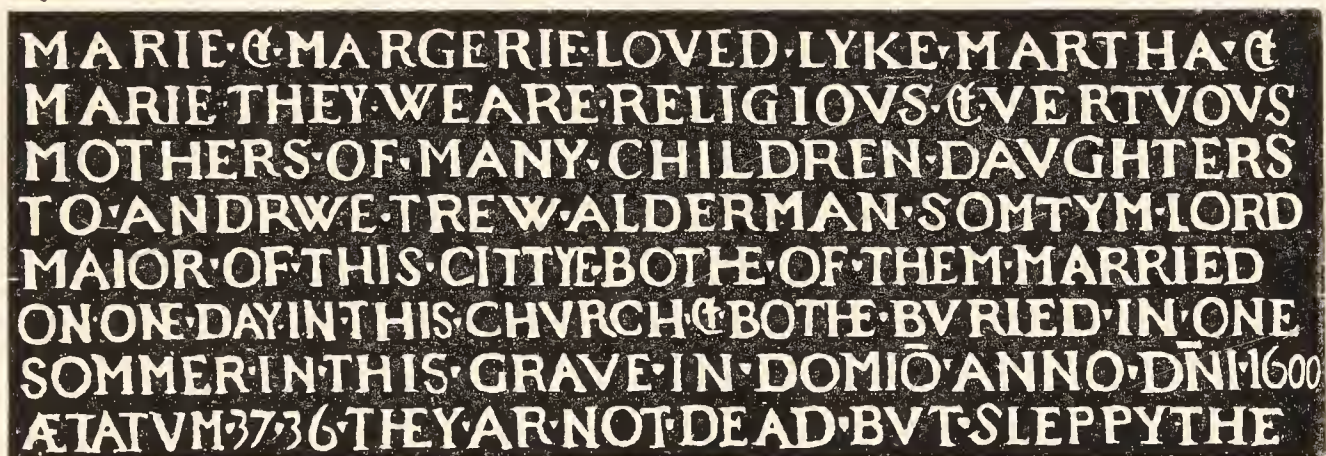 MARIE·&·MARGERIE·LOVED·LYKE·MARTHA·&
MARIE·THEY·WEARE·RELIGIOVS·&·VERTVOVS
MOTHERS·OF·MANY·CHILDREN·DAVGHTERS
TO·ANDRWE·TREW·ALDERMAN·SOMTYM·LORD
MAIOR·OF·THIS·CITTYE·BOTHE·OF·THEM·MARRIED
ON·ONE·DAY·IN·THIS·CHVRCH·&·BOTHE·BVRIED·IN·ONE
SOMMER·IN·THIS·GRAVE·IN·DOMIŌ·ANNO·DN̄I·1600
ÆTATVM·37·36·THEY·AR·NOT·DEAD·BVT·SLEPPYTHE